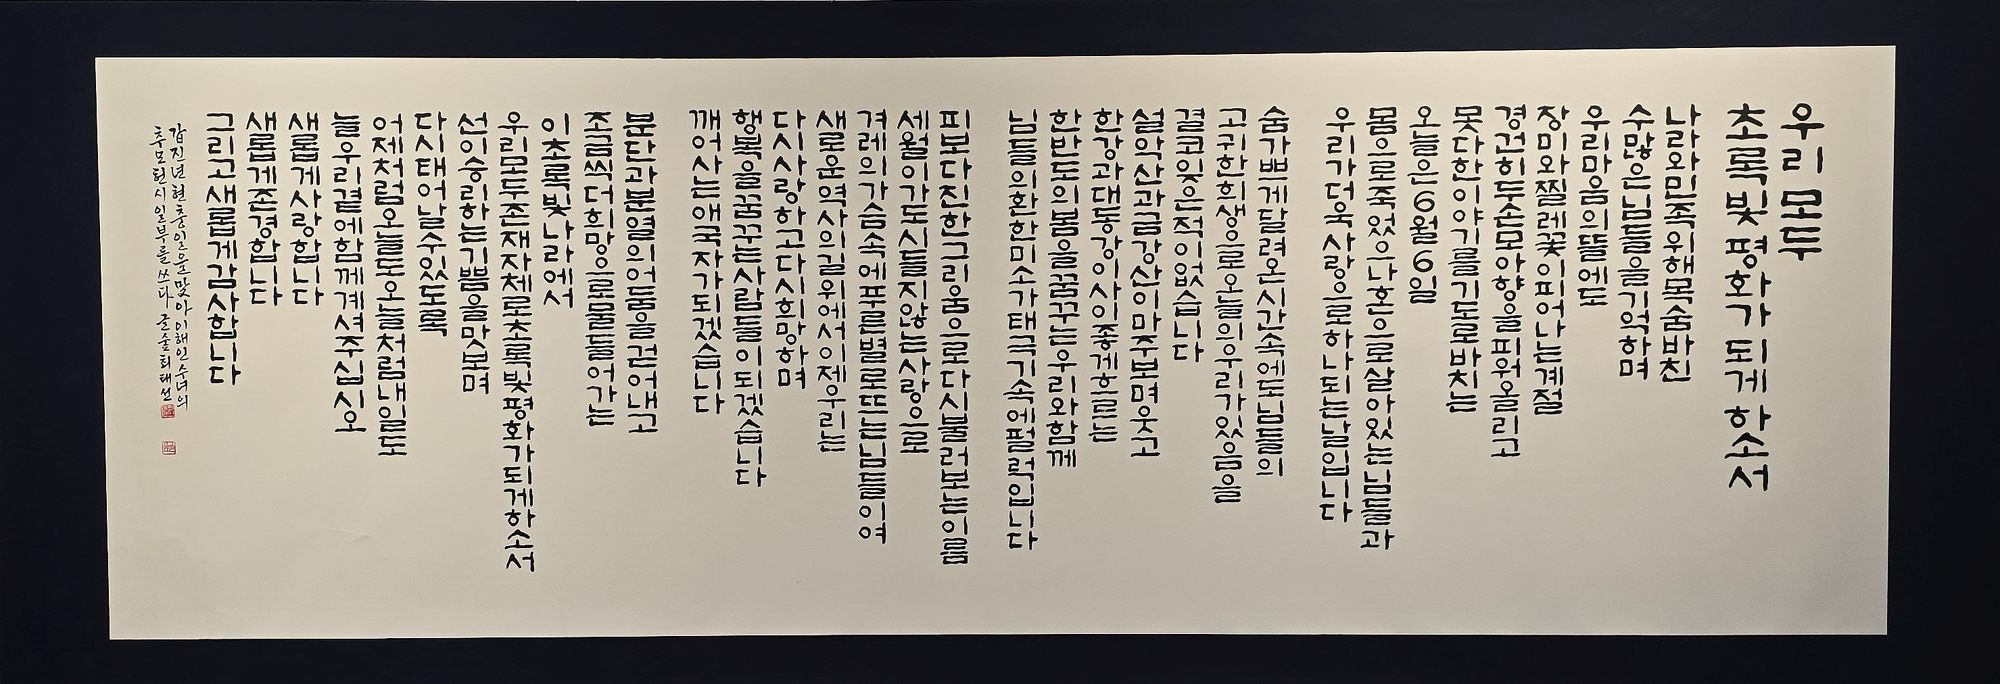 우리 모두
초록빛 평화가 되게 하소서
나라와 민족 위해 목숨 바친
수많은 님들을 기억하며
우리 마음의 뜰에도
장미와 찔레꽃이 피어나는 계절
경건히 두 손 모아 향을 피워 올리고
못다한 이야기를 기도로 바치는
오늘은 6월 6일
몸으로 죽었으나 혼으로 살아있는 님들과
우리가 더욱 사랑으로 하나 되는 날입니다
숨가쁘게 달려온 시간 속에도 님들의
고귀한 희생으로 오늘의 우리가 있음을
결코 잊은 적이 없습니다
설악산과 금강산이 마주보며 웃고
한강과 대동강이 사이좋게 흐르는
한반도의 봄을 꿈꾸는 우리와 함께
님들의 환한 미소가 태극기 속에 펄럭입니다
피보다 진한 그리움으로 다시 불러보는 이름
세월이 가도 시들지 않는 사랑으로
겨레의 가슴 속에 푸른 별로 뜨는 님들이여
새로운 역사의 길 위에서 이제 우리는
다시 사랑하고 다시 희망하며
행복을 꿈꾸는 사람들이 되겠습니다
깨어사는 애국자가 되겠습니다
분단과 분열의 어둠을 걷어내고
조금씩 더 희망으로 물들어가는
이 초록빛 나라에서
우리 모두 존재 자체로 초록빛 평화가 되게 하소서
선이 승리하는 기쁨을 맛보며
다시 태어날 수 있도록
어제처럼 오늘도 오늘처럼 내일도
늘 우리 곁에 함께 계셔 주십시오
새롭게 사랑합니다
새롭게 존경합니다
그리고 새롭게 감사합니다
갑진년 현충일을 맞아 이해인 수녀의
추모헌시 일부를 쓰다 글숲 최태선